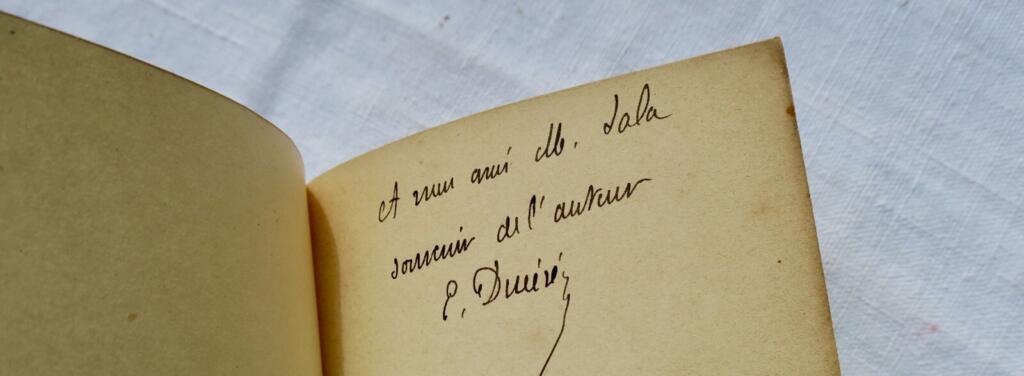 A mon ami M. Lala
souvenir de l'auteur
E. Ducéré